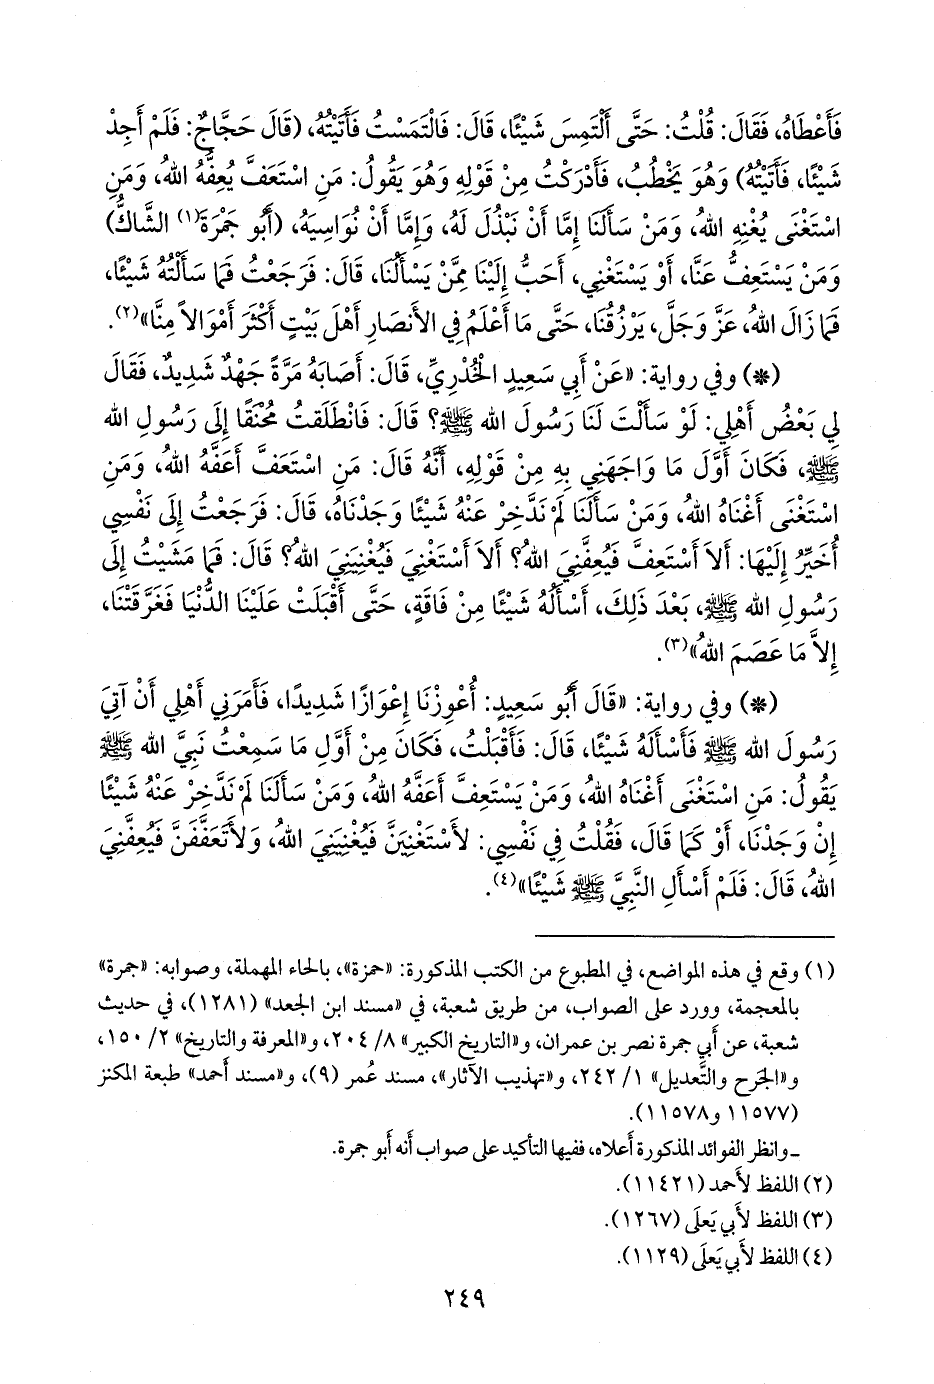 فَأَعْطَاهُ، فَقَالَ: قُلْتُ: حَتَّى أَلْتَمِسَ شَيْئًا، قَالَ: فَالْتَمَسْتُ فَأَتَيْتُهُ، (قَالَ حَجَّاجٌ: فَلَمْ أَجِدْ
شَيْئًا، فَأَتَيْتُهُ) وَهُوَ يَخْطُبُ، فَأَدْرَكْتُ مِنْ قَوْلِهِ وَهُوَ يَقُولُ: مَنِ اسْتَعَفَّ يُعِفَّهُ اللهُ، وَمَنِ
اسْتَغْنَى يُغْنِهِ اللهُ، وَمَنْ سَأَلَنَا إِمَّا أَنْ نَبْذُلَ لَهُ، وَإِمَّا أَنْ نُوَاسِيَهُ، (أَبُو جَمْرَةَ(١) الشَّاكُّ)
وَمَنْ يَسْتَعِفُّ عَنَّا، أَوْ يَسْتَغْنِي، أَحَبُّ إِلَيْنَا مِمَّنْ يَسْأَلُنَا، قَالَ: فَرَجَعْتُ فَمَا سَأَلْتُهُ شَيْئًا،
فَمَا زَالَ اللهُ، عَزَّ وَجَلَّ، يَرْزُقُنَا، حَتَّى مَا أَعْلَمُ فِي الأَنْصَارِ أَهْلَ بَيْتٍ أَكْثَرَ أَمْوَالاً مِنَّا»(٢).
(*) وفي رواية: «عَنْ أَبِي سَعِيدٍ الْخُدْرِيِّ، قَالَ: أَصَابَهُ مَرَّةً جَهْدٌ شَدِيدٌ، فَقَالَ
لِي بَعْضُ أَهْلِي: لَوْ سَأَلْتَ لَنَا رَسُولَ اللهِ ﷺ؟ قَالَ: فَانْطَلَقتُ مُحْنَقًا إِلَى رَسُولِ اللهِ
ﷺ، فَكَانَ أَوَّلَ مَا وَاجَهَنِي بِهِ مِنْ قَوْلِهِ، أَنَّهُ قَالَ: مَنِ اسْتَعَفَّ أَعَفَّهُ اللهُ، وَمَنِ
اسْتَغْنَى أَغْنَاهُ اللهُ، وَمَنْ سَأَلَنَا لَمْ نَدَّخِرْ عَنْهُ شَيْئًا وَجَدْنَاهُ، قَالَ: فَرَجَعْتُ إِلَى نَفْسِي
أُخَيِّرُ إِلَيْهَا: أَلاَ أَسْتَعِفَّ فَيُعِفَّنِيَ اللهُ؟ أَلاَ أَسْتَغْنِي فَيُغْنِيَنِيَ اللهُ؟ قَالَ: فَمَا مَشَيْتُ إِلَى
رَسُولِ اللهِ ﷺ، بَعْدَ ذَلِكَ، أَسْأَلُهُ شَيْئًا مِنْ فَاقَةٍ، حَتَّى أَقْبَلَتْ عَلَيْنَا الدُّنْيَا فَغَرَّقَتْنَا،
إِلاَّ مَا عَصَمَ اللهُ»(٣).
(*) وفي رواية: «قَالَ أَبُو سَعِيدٍ: أُعْوِزْنَا إِعْوَازًا شَدِيدًا، فَأَمَرَنِي أَهْلِي أَنْ آتِيَ
رَسُولَ اللهِ ﷺ فَأَسْأَلَهُ شَيْئًا، قَالَ: فَأَقْبَلْتُ، فَكَانَ مِنْ أَوَّلِ مَا سَمِعْتُ نَبِيَّ اللهِ ﷺ
يَقُولُ: مَنِ اسْتَغْنَى أَغْنَاهُ اللهُ، وَمَنْ يَسْتَعِفَّ أَعَفَّهُ اللهُ، وَمَنْ سَأَلَنَا لَمْ نَدَّخِرْ عَنْهُ شَيْئًا
إِنْ وَجَدْنَا، أَوْ كَمَا قَالَ، فَقُلْتُ فِي نَفْسِي: لأَسْتَغْنِيَنَّ فَيُغْنِيَنِيَ اللهُ، وَلأَتَعَفَّفَنَّ فَيُعِفَّنِيَ
اللهُ، قَالَ: فَلَمْ أَسْأَلِ النَّبِيَّ ﷺ شَيْئًا»(٤).
(١) وقع في هذه المواضع، في المطبوع من الكتب المذكورة: «حمزة»، بالحاء المهملة، وصوابه: «جمرة»
بالمعجمة، وورد على الصواب، من طريق شعبة، في «مسند ابن الجعد» (١٢٨١)، في حديث
شعبة، عن أَبي جمرة نصر بن عمران، و«التاريخ الكبير» ٨/ ٢٠٤، و«المعرفة والتاريخ» ٢/ ١٥٠،
و«الجَرح والتَّعديل» ١/ ٢٤٢، و«تهذيب الآثار»، مسند عُمر (٩)، و«مسند أحمد» طبعة المكنز
(١١٥٧٧ و١١٥٧٨).
ـ وانظر الفوائد المذكورة أَعلاه، ففيها التأكيد على صواب أَنه أَبو جمرة.
(٢) اللفظ لأَحمد (١١٤٢١).
(٣) اللفظ لأَبي يَعلَى (١٢٦٧).
(٤) اللفظ لأَبي يَعلَى (١١٢٩).
٢٤٩